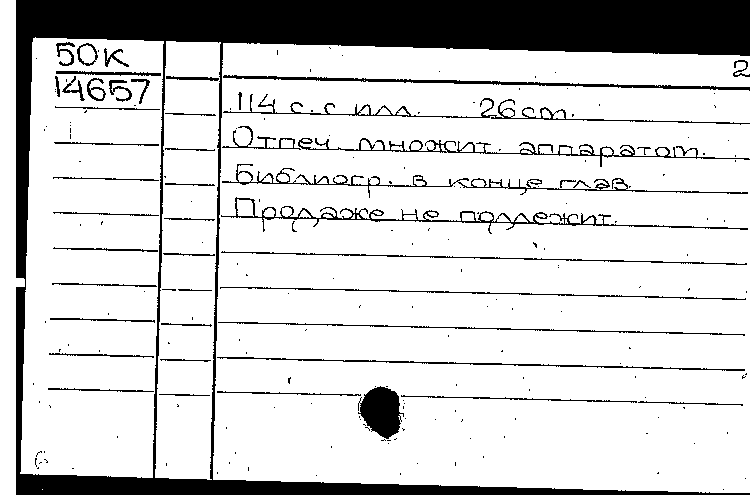 50К
2
14657
114 с. с илл. 26 cm.
Отпеч. множит. аппаратом.
Библиогр. в конце глав
Продаже не подлежит.
6